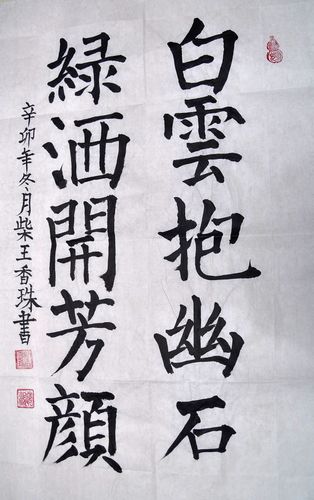 白雲抱幽石
緑酒開芳顔
辛卯年冬月柴王香珠書